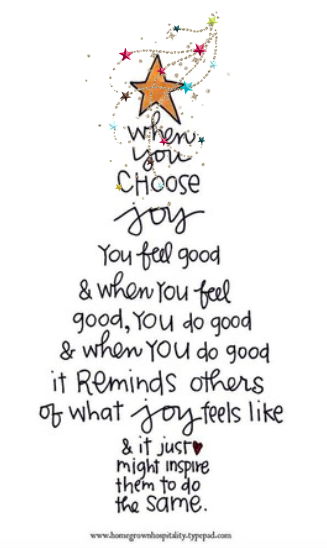 when
you
CHOOSE
joy
You feel good
& when You feel
good, YOU do good
& when YOU do good
it REMINDS others
of what joy feels like
& it just
might inspire
them to do
the SAME.
www.homegrownhospitality.typepad.com